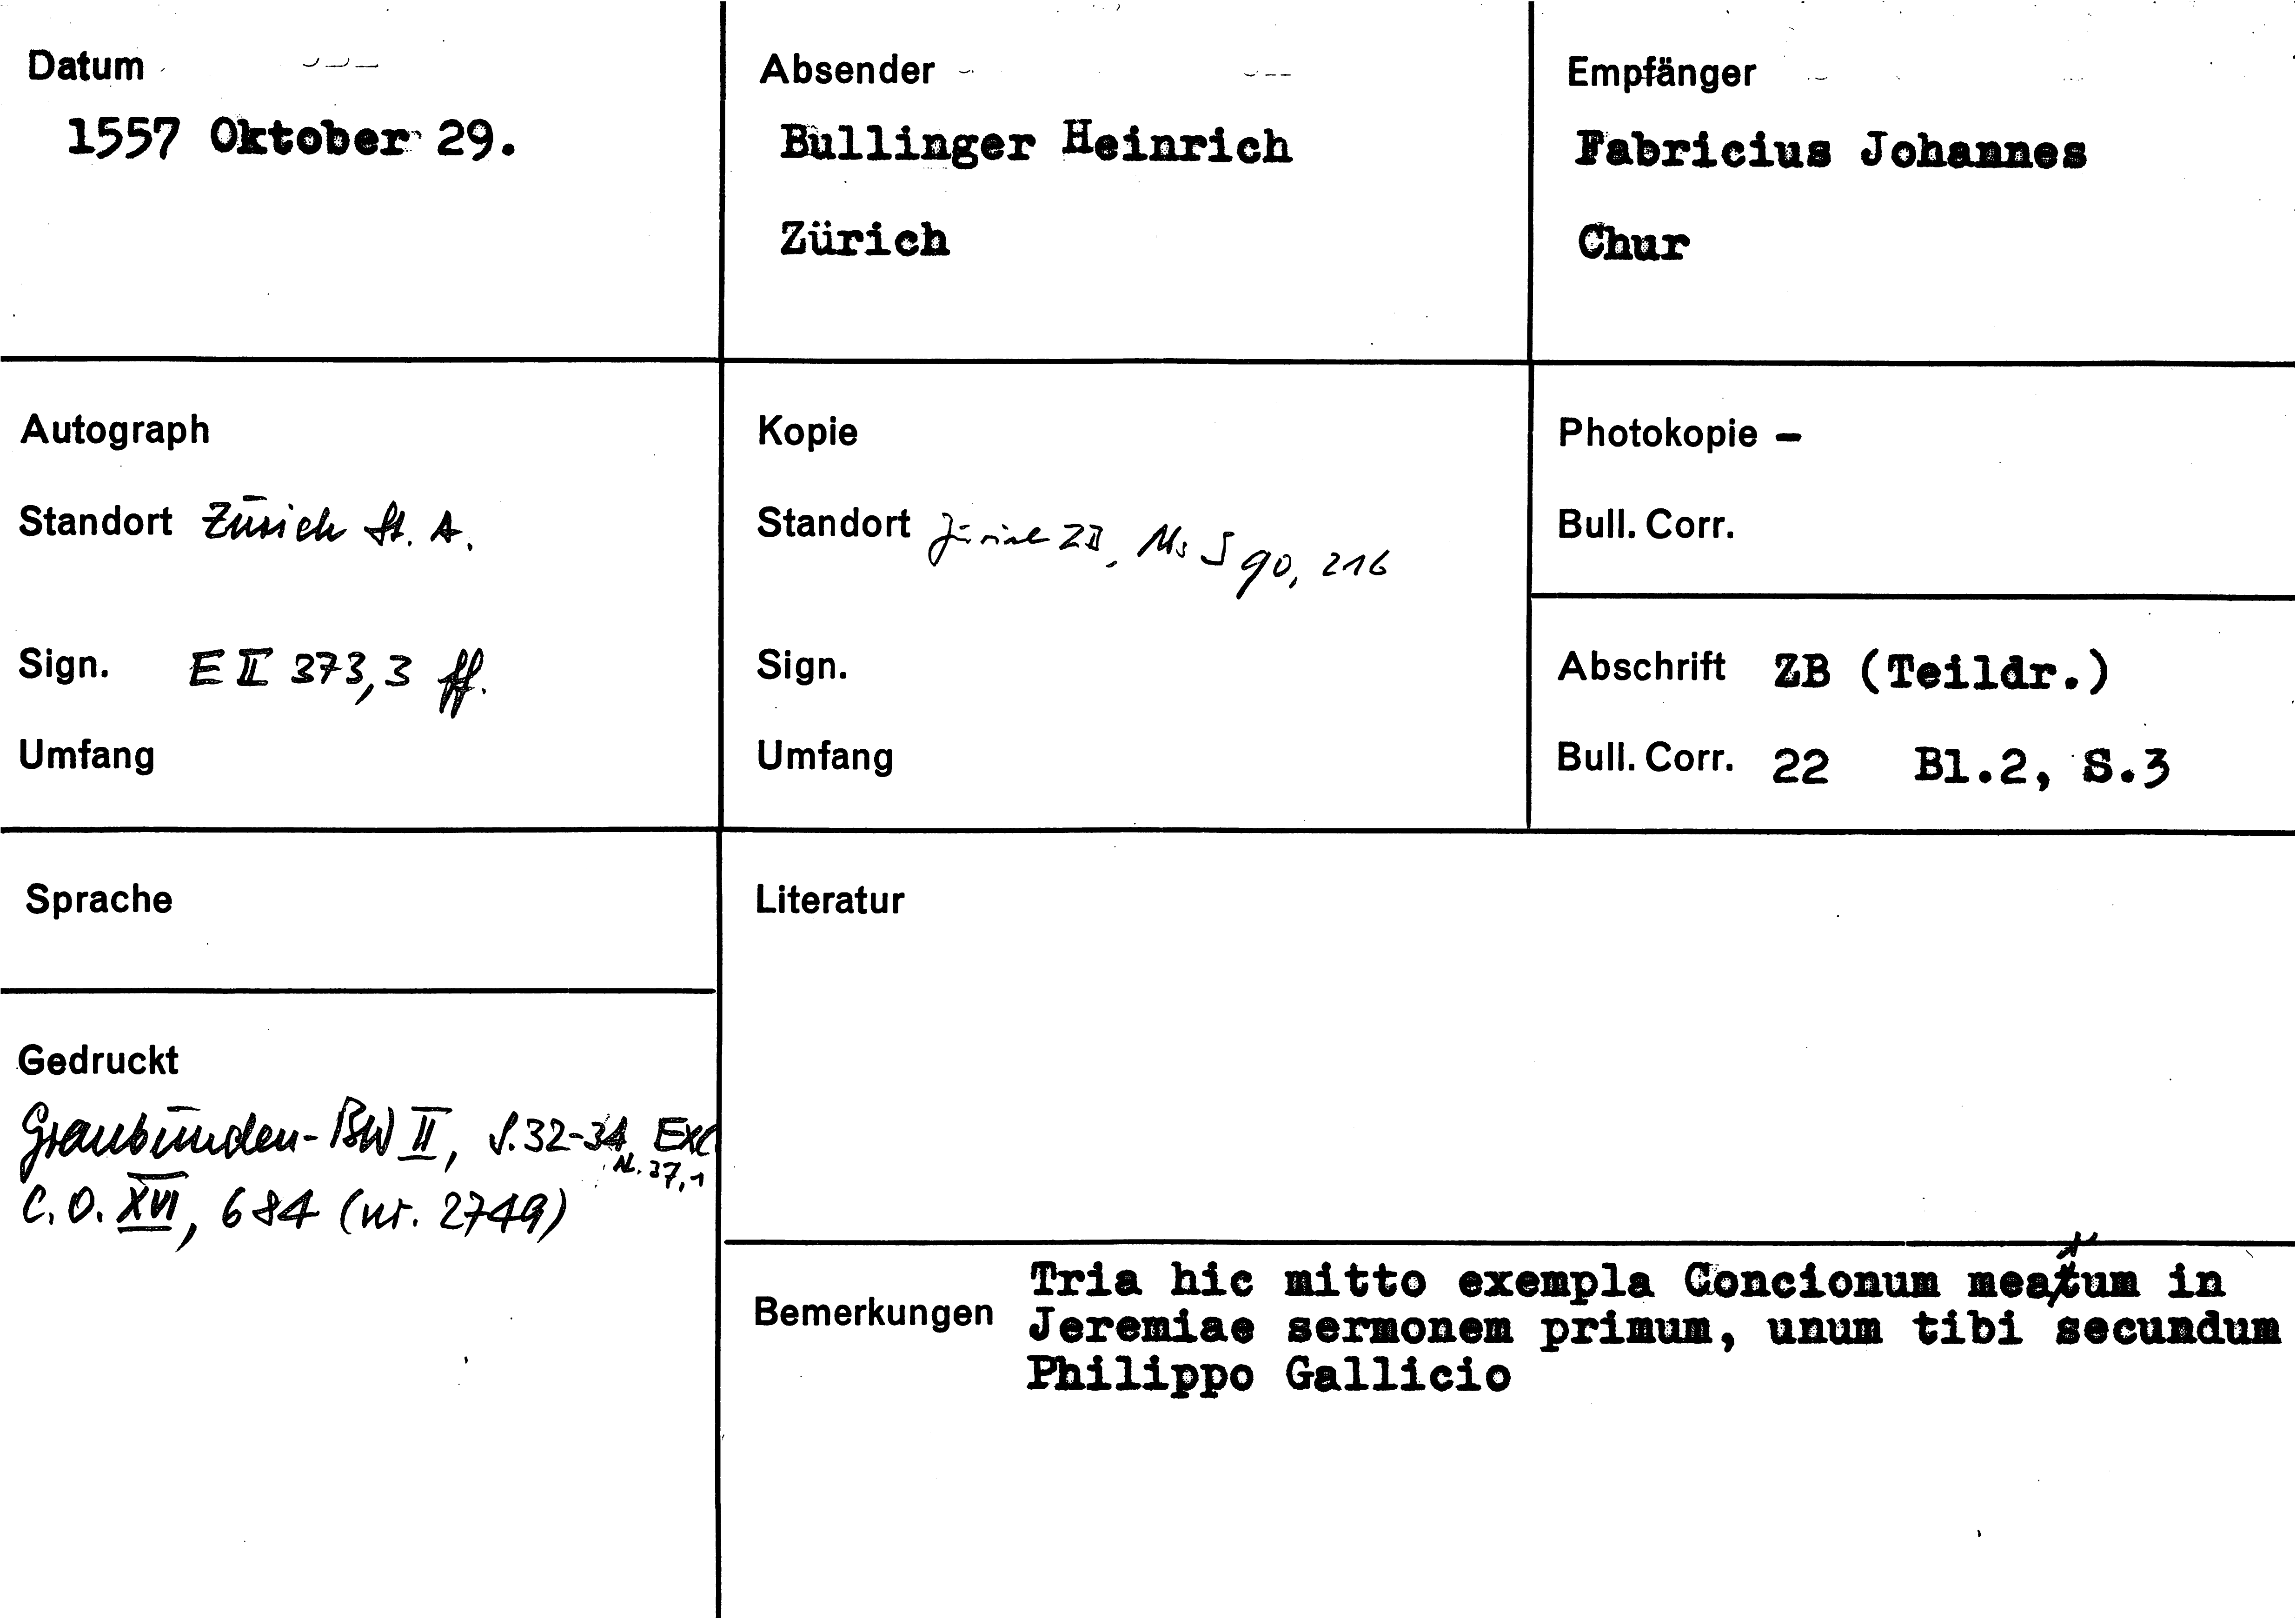 Datum
1557 Oktober 29.
Absender
Bullinger Heinrich
Zürich
Empfänger
Fabricius Johannes
Chur
Autograph
Standort Zürich St. A.
Sign. E II 373,3 ff.
Umfang
Kopie
Standort Zürich ZB, Ms S 90, 216
Sign.
Umfang
Photokopie –
Bull. Corr.
Abschrift ZB (Teildr.)
Bull. Corr. 22 Bl.2, S.3
Sprache
Gedruckt
Graubünden-BW II, S.32-34 Exc
Nr. 37,1
C.O. XVI, 684 (nr. 2749)
Literatur
Bemerkungen
Tria hic mitto exempla Concionum mearum in
Jeremiae sermonem primum, unum tibi secundum
Philippo Gallicio